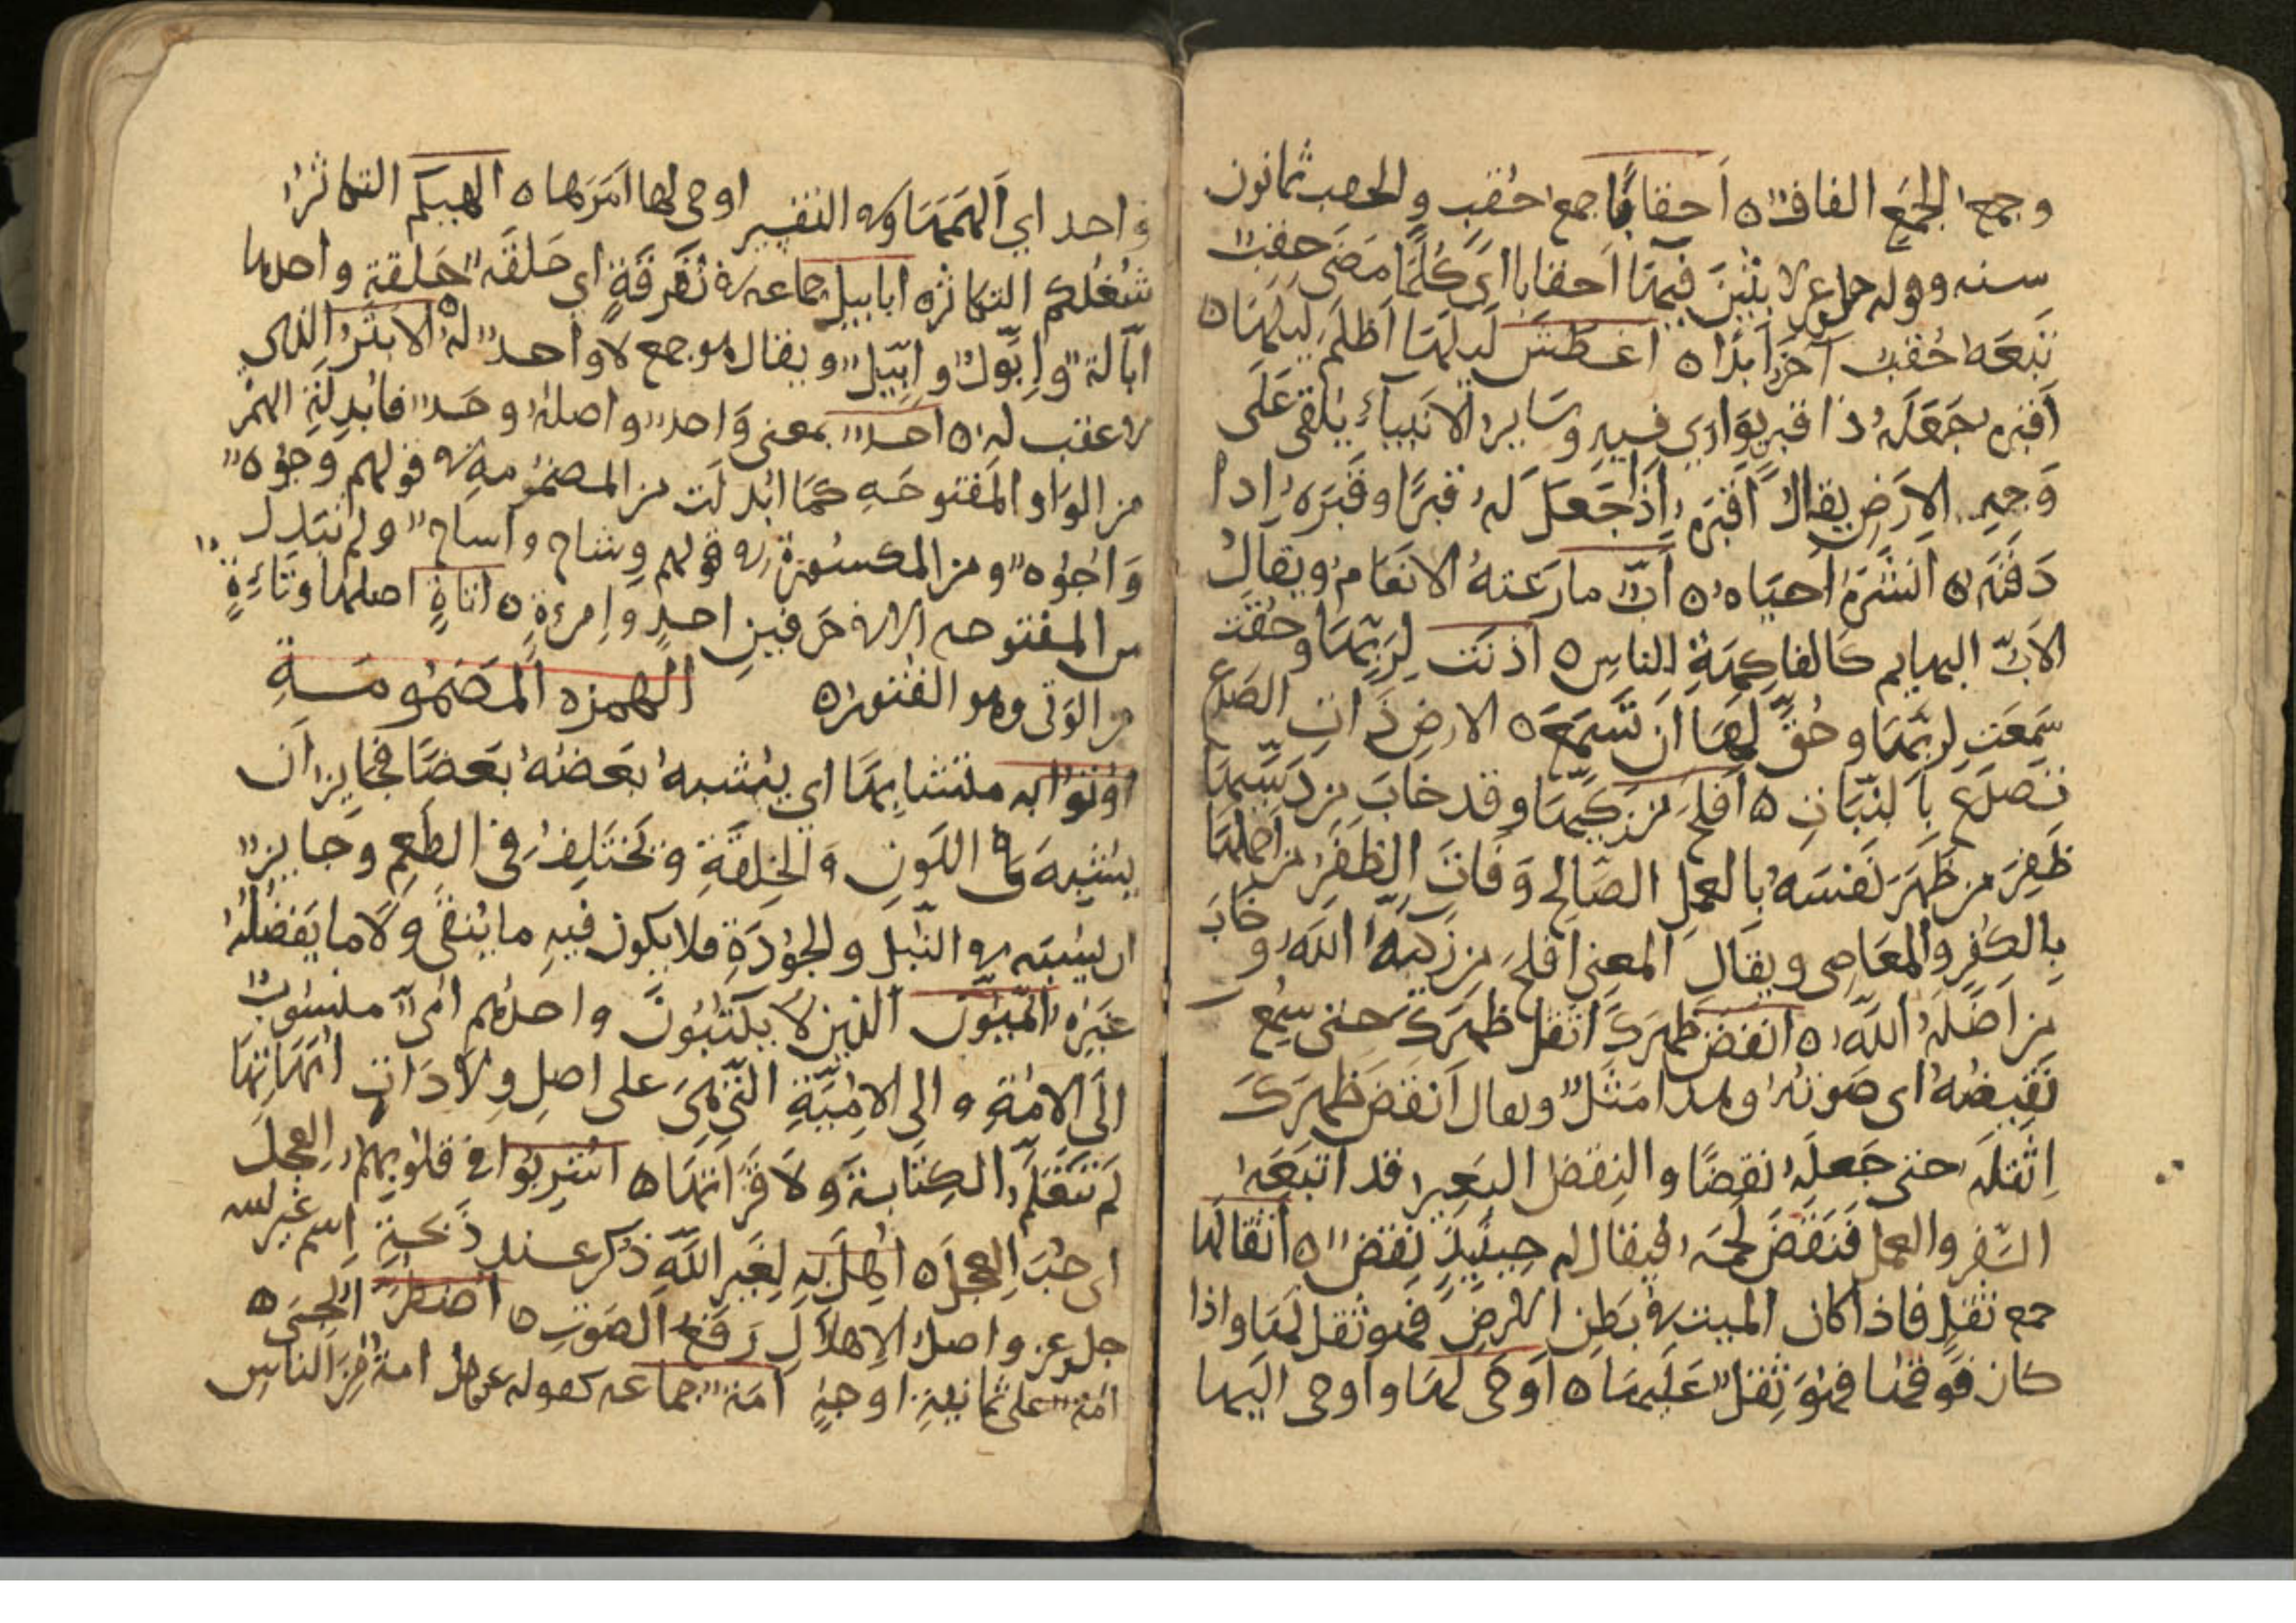 وجمع الجمع الفاف ه أحقابا جمع حقب والحقب ثمانون
سنه وقوله جل وعز لابثين فيها أحقابا أي كلما مضى حقب
تبعه حقب آخر أبدا ه أغطش ليلها أظلم ليلها ه
أقبره جعله ذا قبر يوارى فيه وساير الانبياء يلقى على
وجه الارض يقال أقبره إذا جعل له قبرا وقبره إذا
دفنه ه أنشره أحياه ه أب ما رعته الانعام ويقال
الاب للبهايم كالفاكهة للناس ه أذنت لربها وحقت
سمعت لربها وحق لها أن تسمع ه الارض ذات الصدع
تصدع بالنبات ه أفلح من زكيها وقد خاب من دسيها
ظفر من طهر نفسه بالعمل الصالح وفات الظفر من أخملها
بالكفر والمعاصى ويقال المعنى أفلح من زكيه الله وخاب
من أضله الله ه انقض ظهرك أثقل ظهرك حتى سمع
نقيضه اى صوته وهذا مثل ويقال أنقض ظهرك
اثقله حتى جعله نقضا والنقض البعير قد اتبعه
السفر والعمل فنقض لحمه فيقال له حينيذ نقض ه أثقالها
جمع ثقل فاذا كان الميت في بطن الارض فهو ثقل لها واذا
كان فوقها فهو ثقل عليها ه أوحى لها وأوحى اليها
واحد اي ألهمها وفي التفسير اوحى لها امرها ه الهيكم التكاثر
شغلكم التكاثر ه ابابيل جماعه في تفرقة اي حلقة حلقة واحدها
ابالة وإبول وإبيل ويقال هو جمع لا واحد له ه الابتر الذى
لا عقب له ه احد بمعنى واحد واصله وحد فابدلت الهمز
من الواو المفتوحه كما ابدلت من المضمومه في قولهم وجوه
واجوه ومن المكسورة في قولهم وشاح واشاح ولم تبدل
من المفتوحه الا في حرفين احد وامرءة ه اناة اصلها وناءة
من الونى وهو الفتور ه الهمزه المضمومة
اوتوا به متشابها اي يشبه بعضه بعضا فجايز ان
يشتبه في اللون والخلقة ويختلف في الطعم وجايز
ان يشتبه في النبل والجودة فلا يكون فيه ما ينفى ولا ما يفضله
غيره الاميون الذين لا يكتبون واحدهم امى منسوب
الى الامة والى الامية التي هى على اصل ولادات امهاتها
لم تتعلم الكتابة ولا قراتها ه اشربوا في قلوبهم العجل
اى حب العجل ه اهل به لغير الله ذكر عند ذبحه اسم غير الله
جل وعز واصل الاهلال رفع الصوت ه اضطر الجى ه
امة على ثمانية اوجه امة جماعه كقوله عز وجل امة من الناس